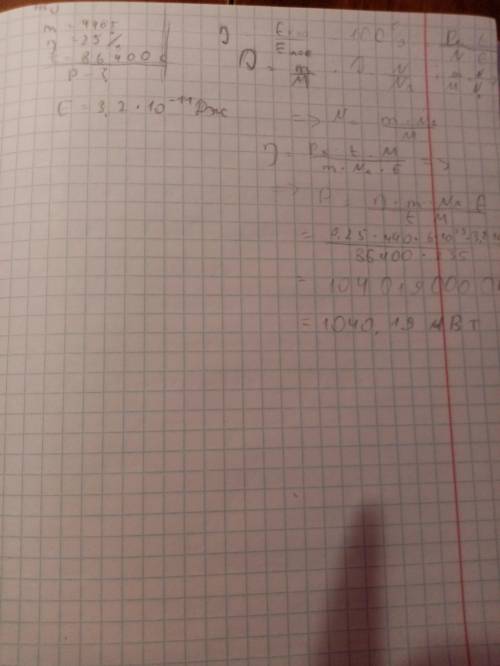 m = 440г
η = 25%
t = 86400 с
P - ?
E = 3,2 · 10⁻¹¹ Дж
η = E / E · 100%
ν = m/M ν = N/Nₐ
=> N = m · Nₐ / M
η = P · t · M / m · Nₐ · E =>
=> P = η · m · Nₐ · E / t · M
= 0,25 · 440 · 6 · 10²³ · 3,2 / 86400 · 235
= 1040,19000
= 1040,19 МВт